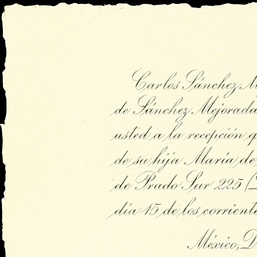 Carlos Sánchez
de Sánchez Mejorada
usted a la recepción
de su hija María de
de Prado Sur 225
dia 15 de los corriente
México, D